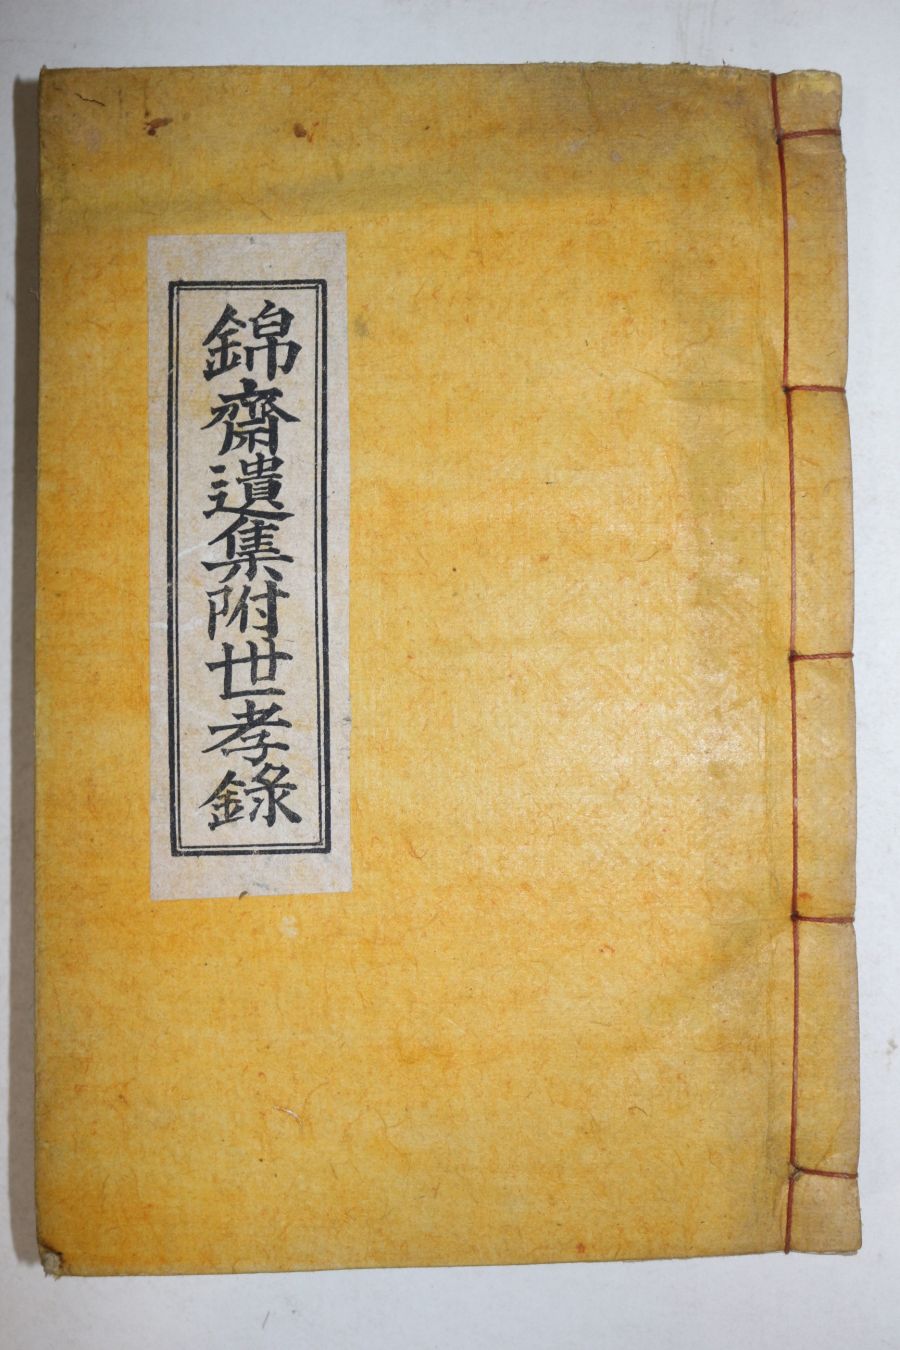 錦齋遺集附世孝錄